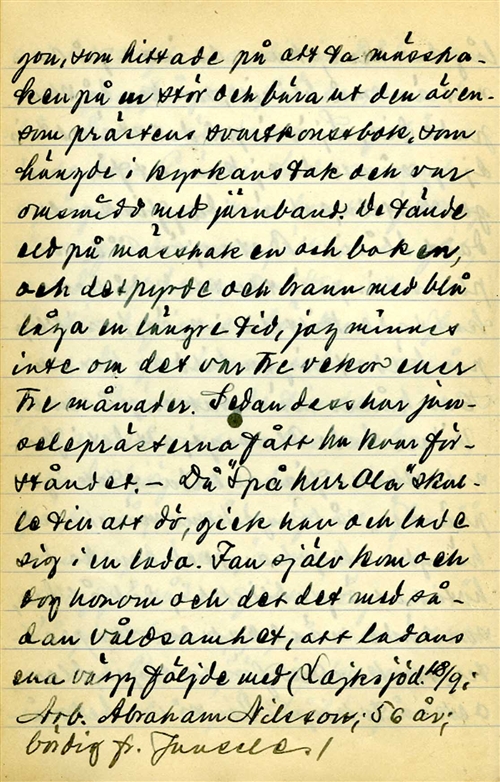 son, som hittade på att ta mässha-
ken på en stör och bära ut den även-
som prästens svartkonstbok, som
hängde i kyrkans tak och var
omsmidd med järnband. De tände
eld på mässhaken och boken,
och det pyrde och brann med blå
låga en längre tid, jag minnes
inte om det var tre vekor eller
tre månader. Sedan dess har jun-
seleprästerna fått ha kvar för-
ståndet. – Då "Spå hur Ola" skul-
le till att dö, gick han och lade
sig i en lada. Fan själv kom och
tog honom och det det med så-
dan våldsamhet, att ladans
ena vägg följde med (Lajksjö d. 18/9;
Arb. Abraham Nilsson; 56 år;
bördig fr. Junsele)